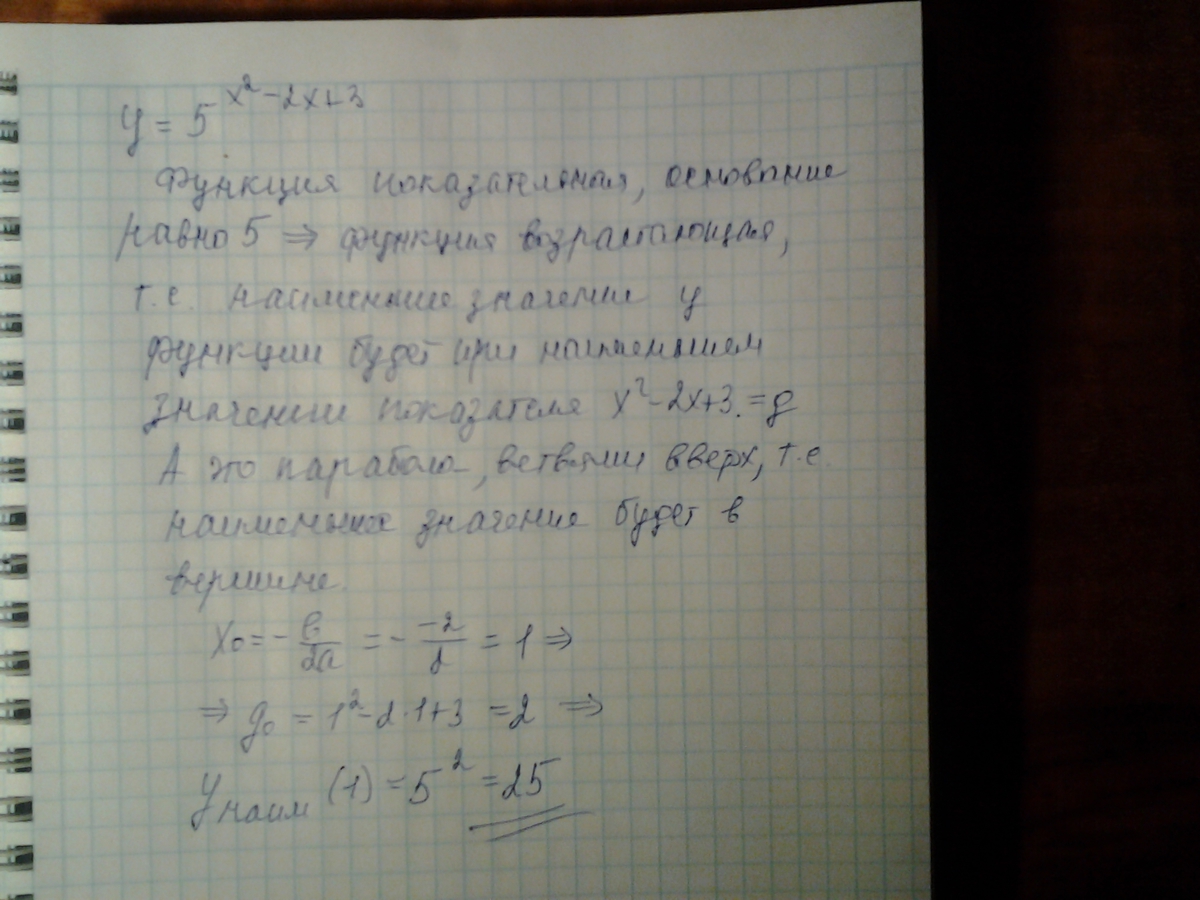 y = 5^(x²-2x+3)
Функция показательная, основание
равно 5 ⇒ функция возрастающая,
т.е. наименьшее значение y
функции будет при наименьшем
значении показателя x²-2x+3.=g
А это парабола, ветвями вверх, т.е.
наименьшее значение будет в
вершине.
x₀=-b/2a = - -2/2 = 1 ⇒
⇒ g₀ = 1²-2·1+3 =2 ⇒
yнаим (1) = 5² =25